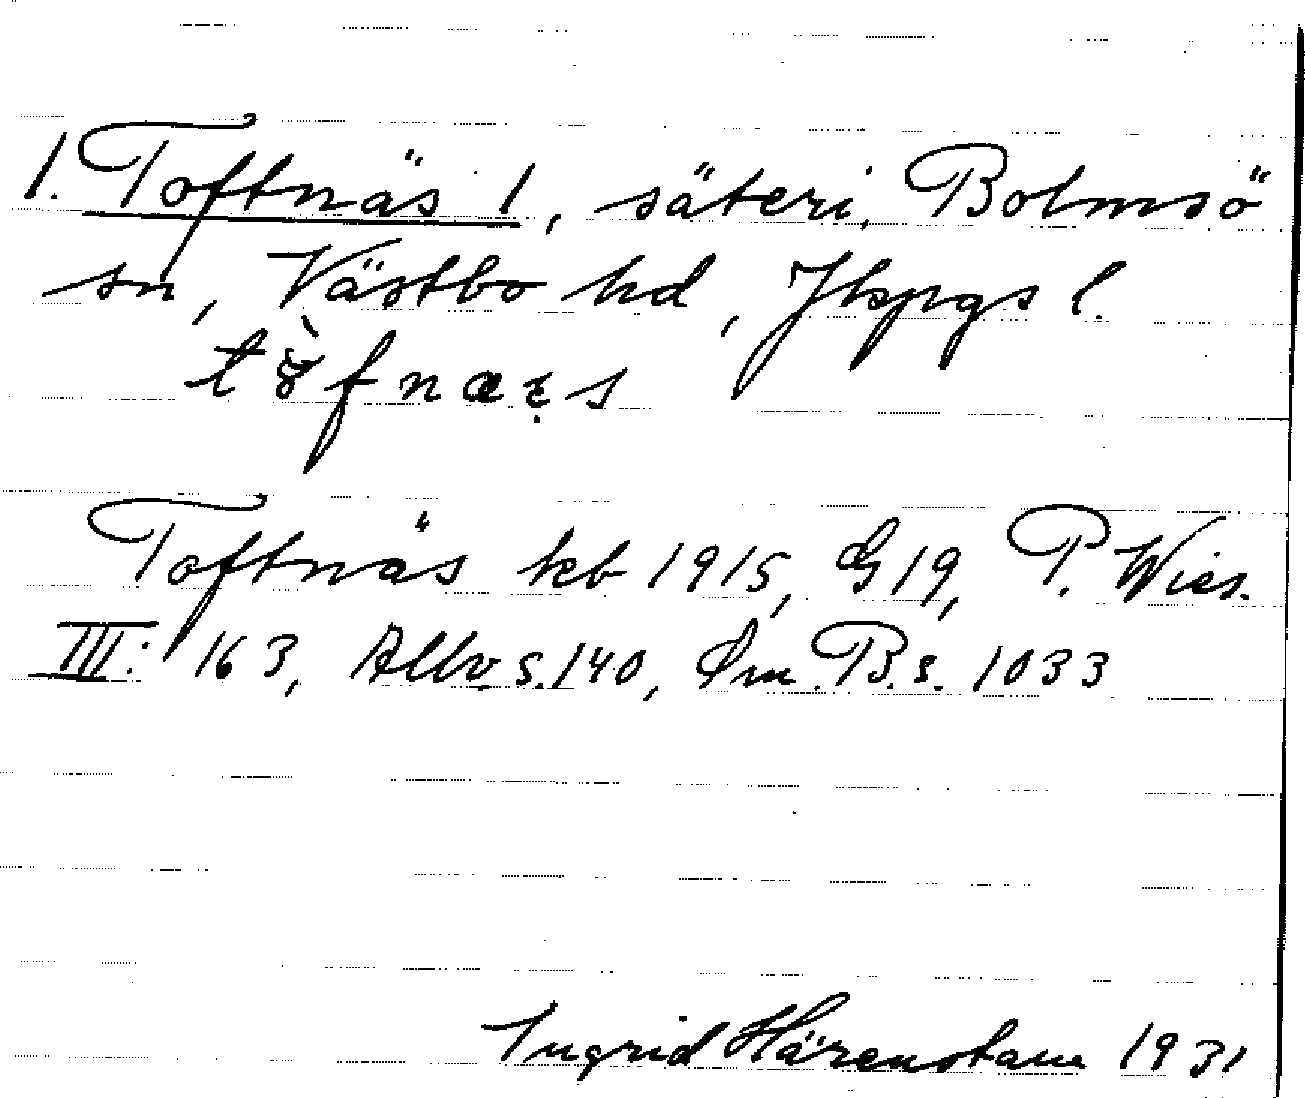 1. Toftnäs 1, säteri, Bolmsö
sn, Västbo hd, Jkpgs l.
Toftnäs kb 1915, G19, P. Wies.
III: 163, Allv. s. 140, Sm. B. s. 1033
Ingrid Härenstam 1931